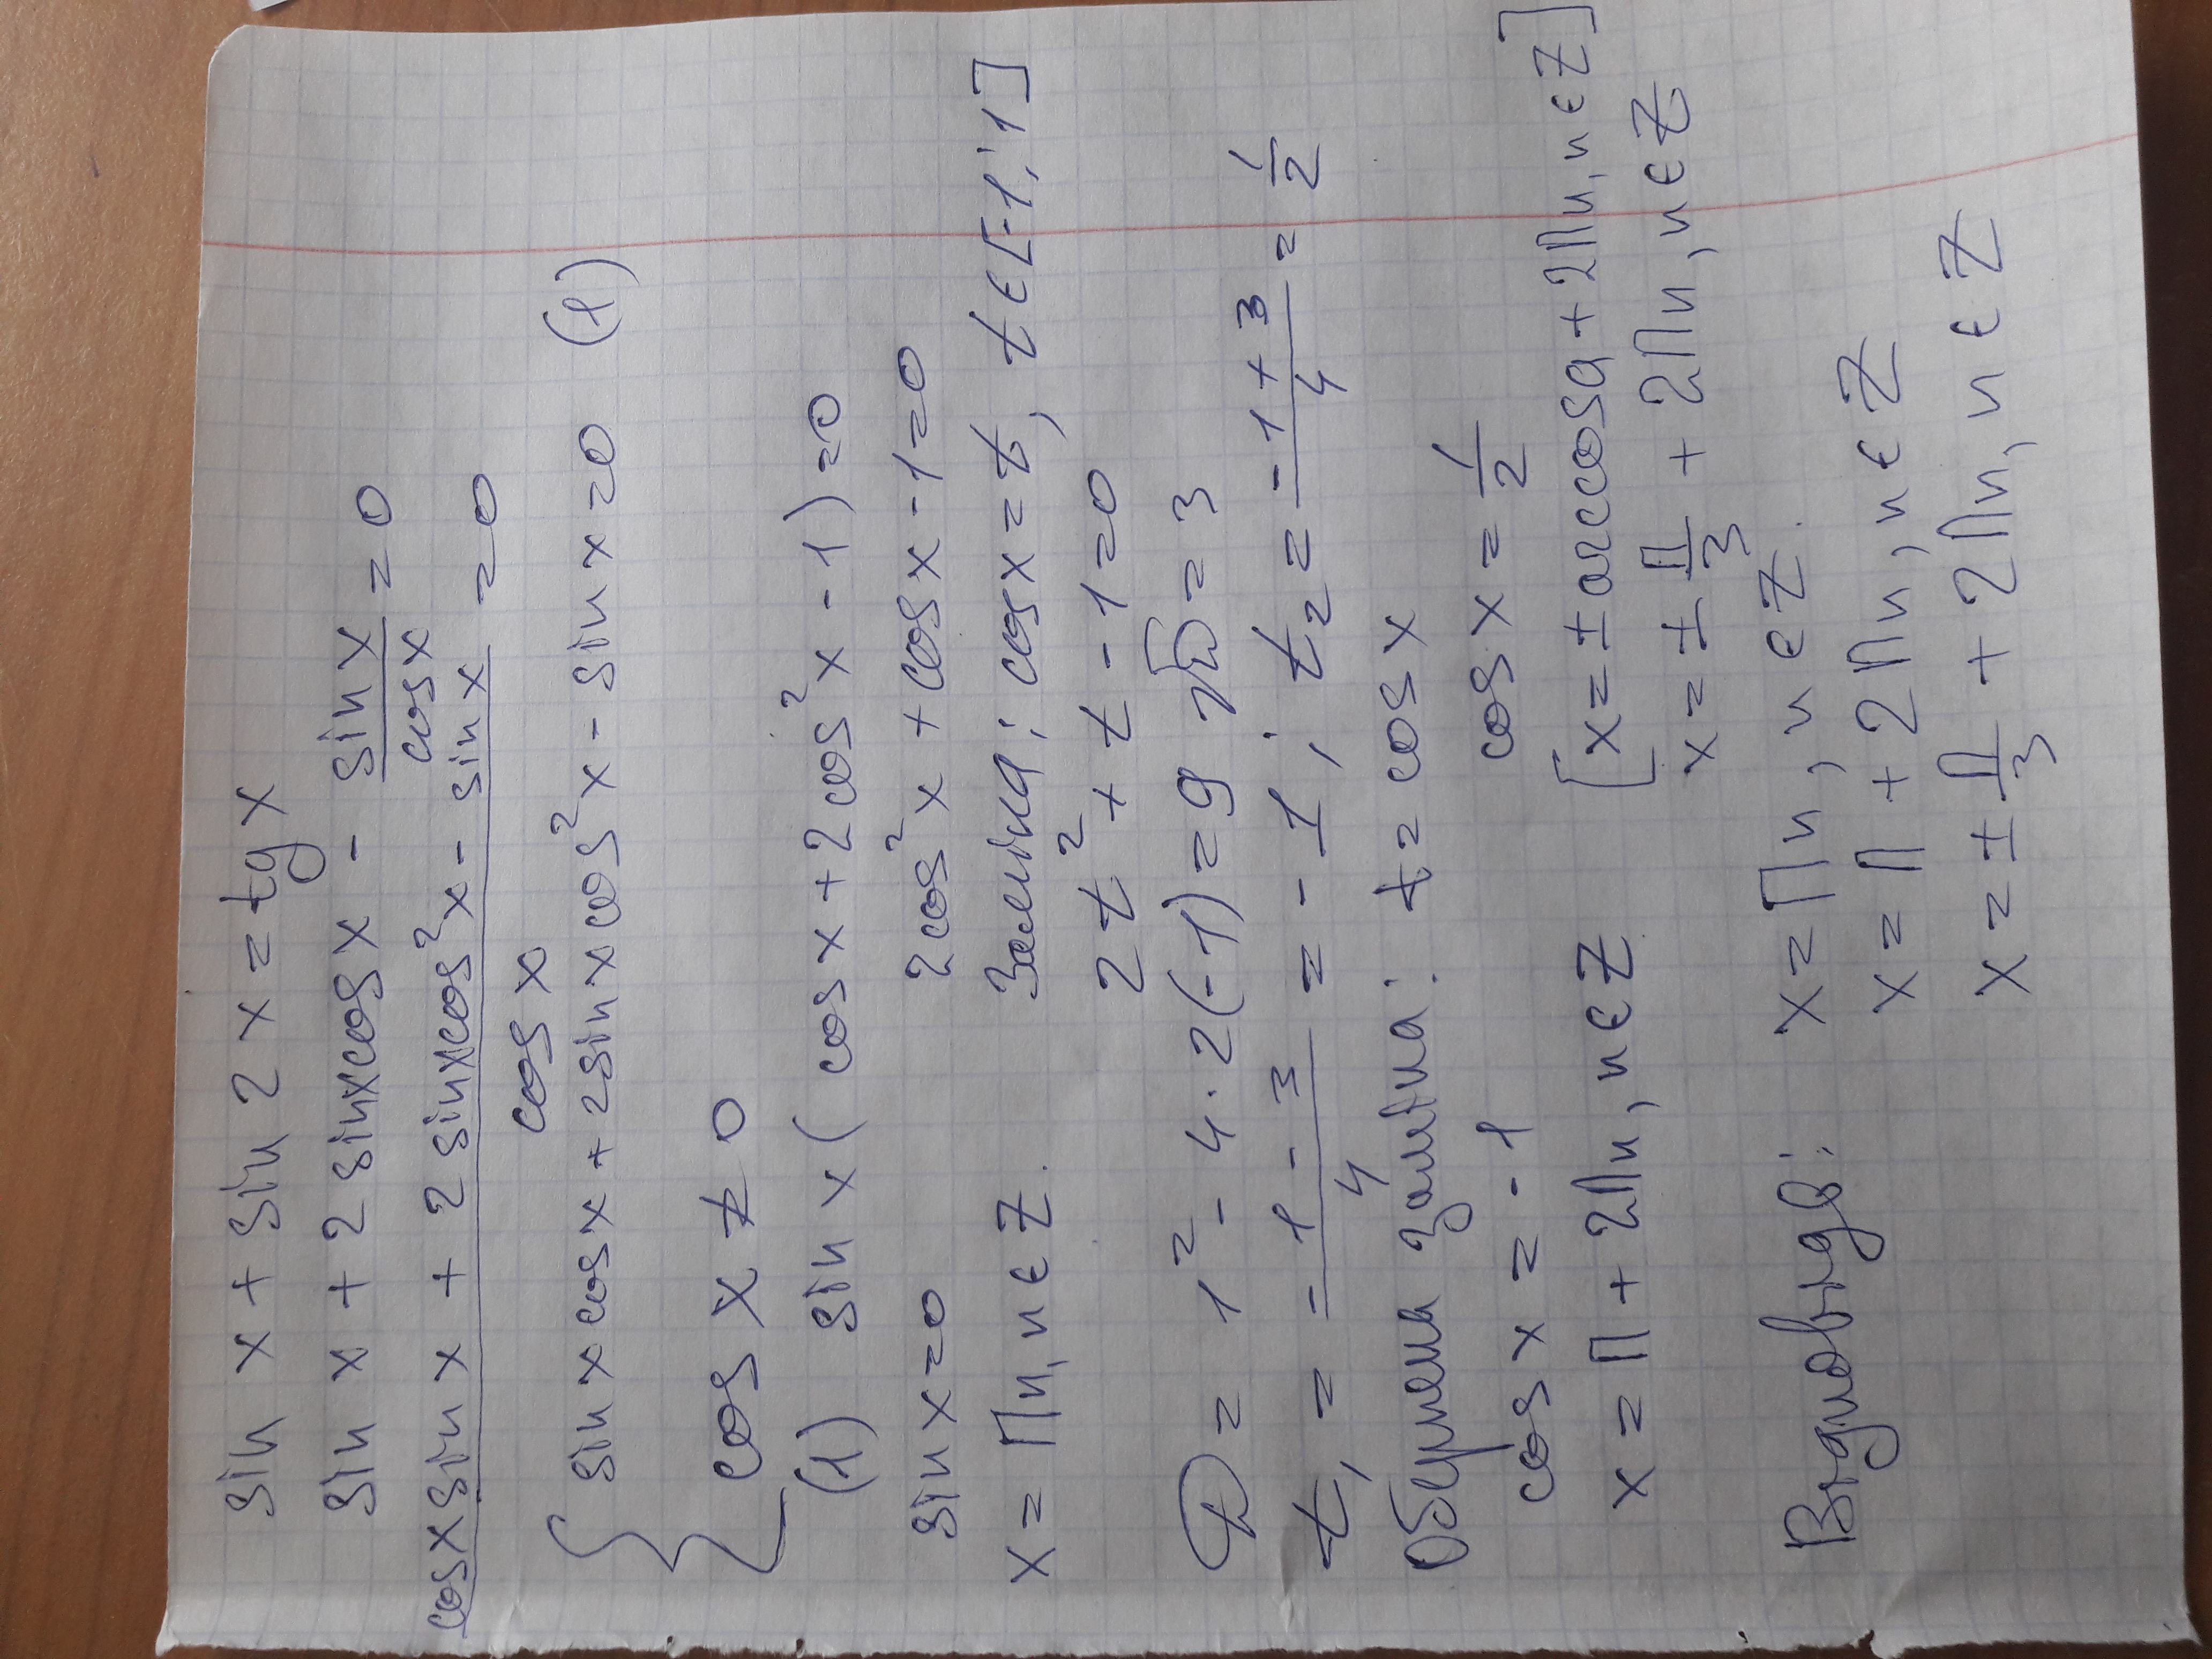 sin x + sin 2x = tg x
sin x + 2 sinxcosx - sinx/cosx = 0
cosxsinx + 2sinxcos²x - sinx / cosx = 0
{ sinxcosx + 2sinxcos²x - sinx = 0 (1)
cosx ≠ 0
(1) sinx (cosx + 2cos²x - 1) = 0
sinx = 0 2cos²x + cosx - 1 = 0
x = Пn, n ∈ Z. Заміна: cosx = t, t ∈ [-1; 1]
2t² + t - 1 = 0
D = 1² - 4·2(-1) = 9 √D = 3
t₁ = -1-3/4 = -1; t₂ = -1+3/4 = 1/2
Обернена заміна: t = cosx
cosx = -1 cosx = 1/2
x = П + 2Пn, n ∈ Z [x = ± arccosa + 2Пn, n ∈ Z]
x = ± П/3 + 2Пn, n ∈ Z
Відповідь: x = Пn, n ∈ Z.
x = П + 2Пn, n ∈ Z
x = ± П/3 + 2Пn, n ∈ Z